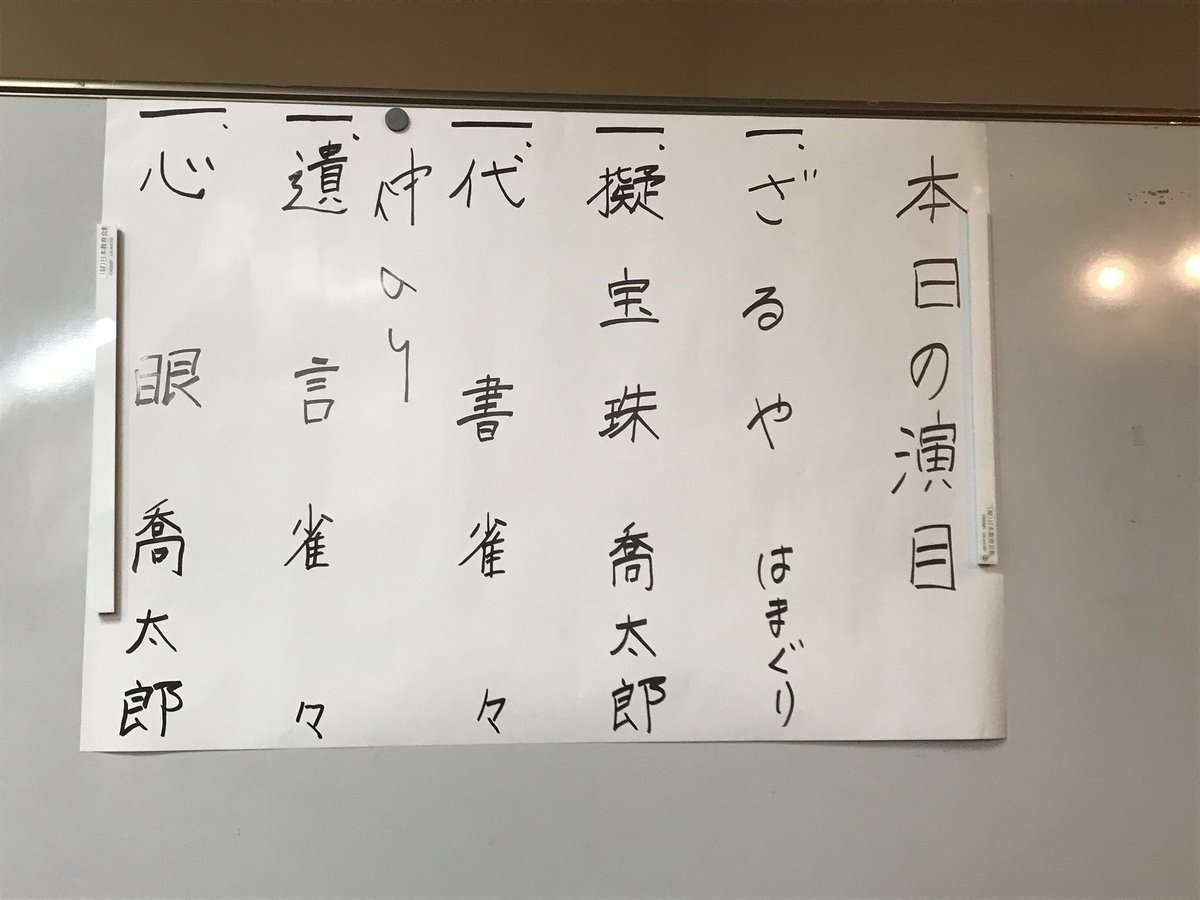 本日の演目
一、ざるや はまぐり
一、擬宝珠 喬太郎
一、代書 雀々
仲のり
一、遺言 雀々
一、心眼 喬太郎